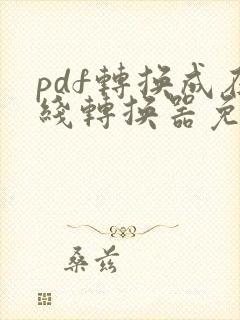 pdf轉換成在
綫轉換器免
桑兹